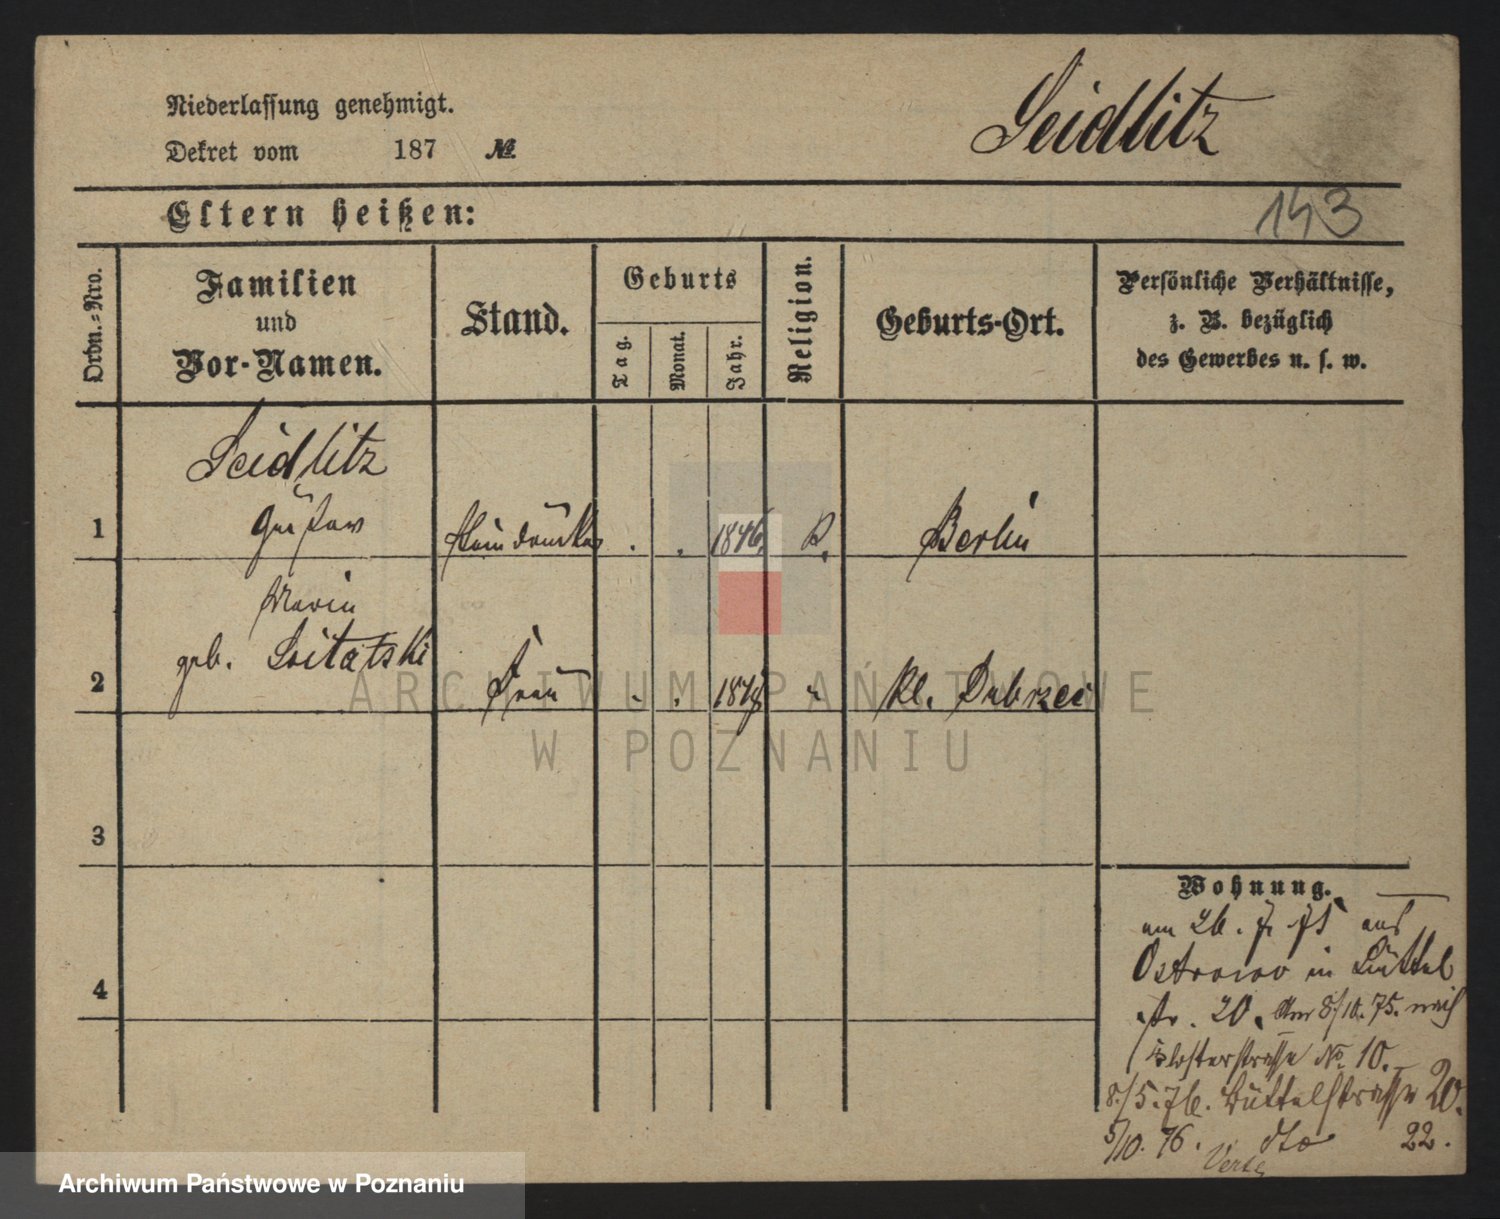 Niederlassung genehmigt.
Dekret vom 187 №
Seidlitz
Eltern heißen:
143
Ordn.-Nro.
Familien
und
Vor-Namen.
Stand.
Geburts
Tag.
Monat.
Jahr.
Religion.
Geburts-Ort.
Persönliche Verhältnisse,
z. B. bezüglich
des Gewerbes u. s. w.
Seidlitz
1 Gustav Steindrucker . . 1846 Berlin
Maria
geb.
2 Frau . . " Kl. Dubrzec
3
4
Wohnung.
am 26. 7. 75 aus
Ostrowo in Büttel
str. 20. Am 8/10. 75. nach
Klosterstrasse No. 10.
8./5. 76. Büttelstrasse 20.
5/10. 76. dto 22.
ARCHIWUM PAŃSTWOWE
W POZNANIU
Archiwum Państwowe w Poznaniu